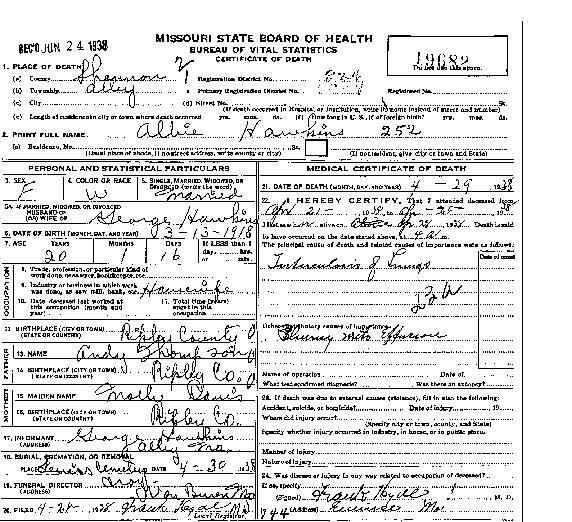 MISSOURI STATE BOARD OF HEALTH
BUREAU OF VITAL STATISTICS
CERTIFICATE OF DEATH
REC'D JUN 24 1938
19682
1. PLACE OF DEATH
(a) County Shannon Registration District No.
(b) Township Alley Primary Registration District No. Registered No.
(c) City (d) Street No. St.
(If death occurred in Hospital or Institution, write its name instead of street and number)
(e) Length of residence in city or town where death occurred yrs. mos. ds. (f) How long in U. S., if of foreign birth? yrs. mos. ds.
2. PRINT FULL NAME Allie Hawkins 252
(a) Residence, No. St.
(Usual place of abode, if nonresident address, write county or city) (If nonresident, give city or town and State)
PERSONAL AND STATISTICAL PARTICULARS
3. SEX F
4. COLOR OR RACE W
5. SINGLE, MARRIED, WIDOWED, OR DIVORCED (write the word) Married
5A. IF MARRIED, WIDOWED, OR DIVORCED
HUSBAND OF (OR) WIFE OF George Hawkins
6. DATE OF BIRTH (MONTH, DAY, AND YEAR) 3-13-1918
7. AGE YEARS MONTHS DAYS If LESS than 1 day, hrs. or min.
20 1 16
OCCUPATION
8. Trade, profession, or particular kind of work done, sawyer, bookkeeper, etc.
9. Industry or business in which work was done, as saw mill, bank, etc. Housewife
10. Date deceased last worked at this occupation (month and year)
11. Total time (years) spent in this occupation
12. BIRTHPLACE (CITY OR TOWN) (STATE OR COUNTRY) Ripley County
FATHER
13. NAME Andy Thompson
14. BIRTHPLACE (CITY OR TOWN) (STATE OR COUNTRY) Ripley Co.
MOTHER
15. MAIDEN NAME Molly Davis
16. BIRTHPLACE (CITY OR TOWN) (STATE OR COUNTRY) Ripley Co.
17. INFORMANT (ADDRESS) George Hawkins
Alley Mo.
18. BURIAL, CREMATION, OR REMOVAL
PLACE Cemetery DATE 4-30 1938
19. FUNERAL DIRECTOR (ADDRESS)
Van Buren Mo
20. FILED 1938 Frank Hyde M.D.
Local Registrar
MEDICAL CERTIFICATE OF DEATH
21. DATE OF DEATH (MONTH, DAY, AND YEAR) 4-29 1938
22. I HEREBY CERTIFY, That I attended deceased from
Apr 21- 1938, to Apr-25- 1938
I last saw alive on 1938. Death is said
to have occurred on the date stated above, at
The principal cause of death and related causes of importance were as follows:
Date of onset
Tuberculosis of Lungs
Other contributory causes of importance:
Pleurisy with Effusion
Name of operation Date of
What test confirmed diagnosis? Was there an autopsy?
23. If death was due to external causes (violence), fill in also the following:
Accident, suicide, or homicide? Date of injury 19
Where did injury occur?
(Specify city or town, county, and State)
Specify whether injury occurred in industry, in home, or in public place.
Manner of injury
Nature of injury
24. Was disease or injury in any way related to occupation of deceased?
If so, specify
(Signed) Frank Hyde M. D.
(Address) Eminence Mo.